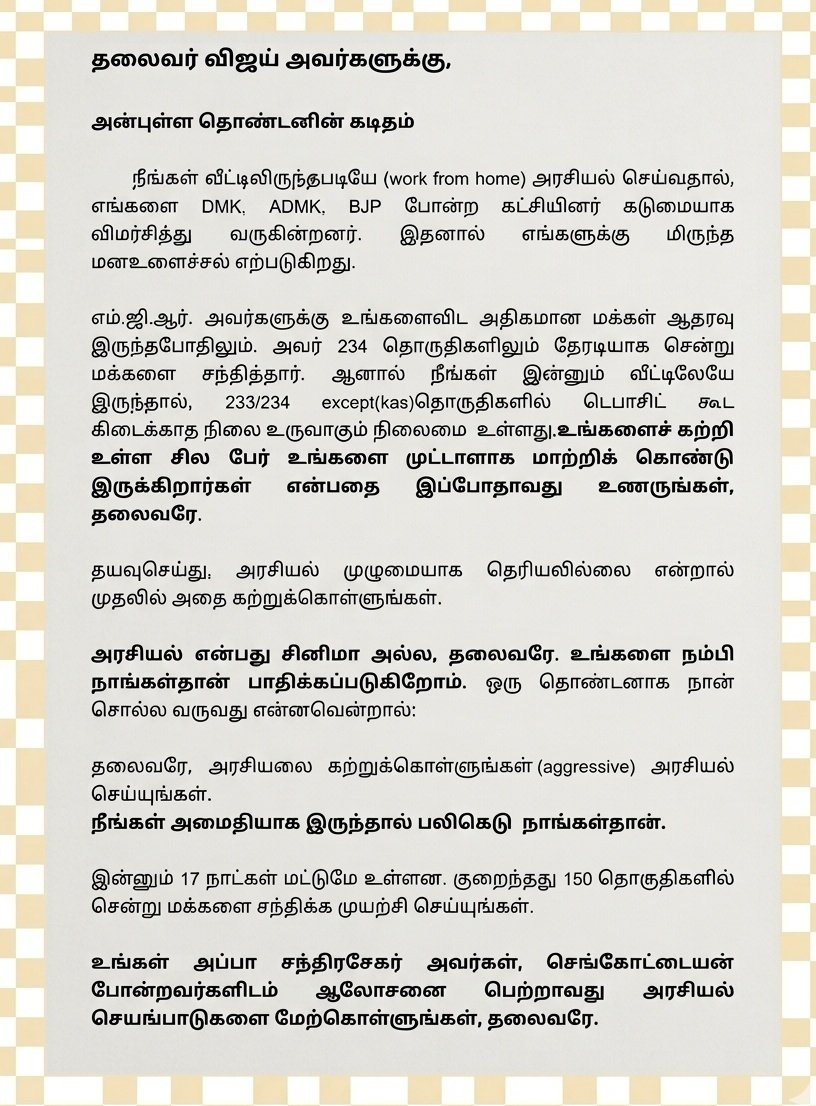 தலைவர் விஜய் அவர்களுக்கு,
அன்புள்ள தொண்டனின் கடிதம்
நீங்கள் வீட்டிலிருந்தபடியே (work from home) அரசியல் செய்வதால்,
எங்களை DMK, ADMK, BJP போன்ற கட்சியினர் கடுமையாக
விமர்சித்து வருகின்றனர். இதனால் எங்களுக்கு மிருந்த
மனஉளைச்சல் எற்படுகிறது.
எம்.ஜி.ஆர். அவர்களுக்கு உங்களைவிட அதிகமான மக்கள் ஆதரவு
இருந்தபோதிலும். அவர் 234 தொருதிகளிலும் தேரடியாக சென்று
மக்களை சந்தித்தார். ஆனால் நீங்கள் இன்னும் வீட்டிலேயே
இருந்தால், 233/234 except(kas)தொருதிகளில் டெபாசிட் கூட
கிடைக்காத நிலை உருவாகும் நிலைமை உள்ளது.உங்களைச் கற்றி
உள்ள சில பேர் உங்களை முட்டாளாக மாற்றிக் கொண்டு
இருக்கிறார்கள் என்பதை இப்போதாவது உணருங்கள்,
தலைவரே.
தயவுசெய்து, அரசியல் முழுமையாக தெரியலில்லை என்றால்
முதலில் அதை கற்றுக்கொள்ளுங்கள்.
அரசியல் என்பது சினிமா அல்ல, தலைவரே. உங்களை நம்பி
நாங்கள்தான் பாதிக்கப்படுகிறோம். ஒரு தொண்டனாக நான்
சொல்ல வருவது என்னவென்றால்:
தலைவரே, அரசியலை கற்றுக்கொள்ளுங்கள் (aggressive) அரசியல்
செய்யுங்கள்.
நீங்கள் அமைதியாக இருந்தால் பலிகெடு நாங்கள்தான்.
இன்னும் 17 நாட்கள் மட்டுமே உள்ளன. குறைந்தது 150 தொகுதிகளில்
சென்று மக்களை சந்திக்க முயற்சி செய்யுங்கள்.
உங்கள் அப்பா சந்திரசேகர் அவர்கள், செங்கோட்டையன்
போன்றவர்களிடம் ஆலோசனை பெற்றாவது அரசியல்
செயங்பாடுகளை மேற்கொள்ளுங்கள், தலைவரே.